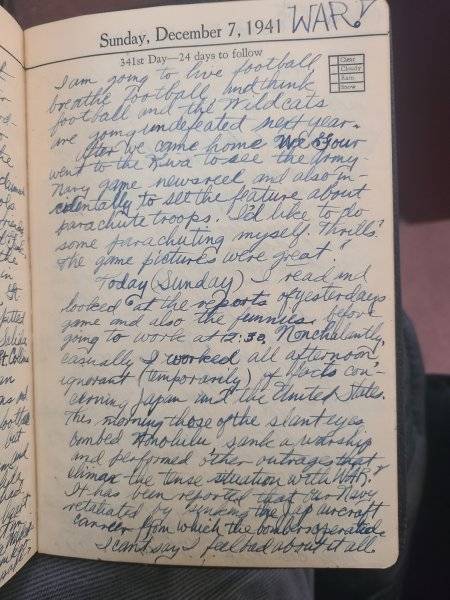 Sunday, December 7, 1941 WAR!
341st Day—24 days to follow
Clear
Cloudy
Rain
Snow
I am going to live football
breathe football, and think
football and the Wildcats
are going undefeated next year.
After we came home we
went to the to see the Army-
Navy game newsreel and also in-
cidentally to see the feature about
parachute troops. I'd like to do
some parachuting myself. Thrills!
The game pictures were great.
Today (Sunday) I read and
looked at the reports of yesterdays
game and also the funnies before
going to work at 12:30. Nonchalantly,
casually I worked all afternoon
ignorant (temporarily) of facts con-
cerning Japan and the United States.
This morning those of the slant eyes
bombed Honolulu, sank a warship
and performed other outrages that
climax the tense situation with WAR!
It has been reported that our Navy
retaliated by sinking the Jap aircraft
carrier from which the bombers operated.
I can't say I feel bad about it all.